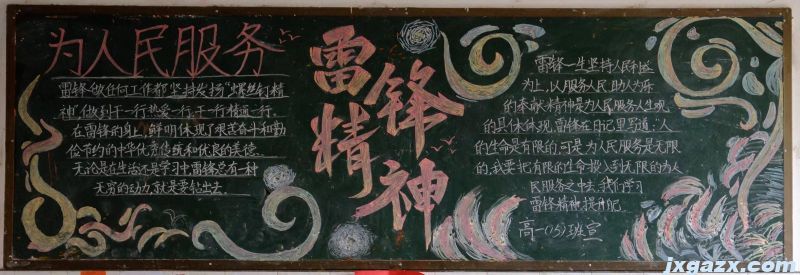 为人民服务
雷锋做任何工作都坚持发扬“螺丝钉精
神”,做到干一行热爱一行,干一行精通一行。
在雷锋的身上,鲜明体现了艰苦奋斗和勤
俭节约的中华优良传统和优良的美德。
无论是在生活还是学习中雷锋总有一种
无穷的动力,就是要钻出去。
雷锋
精神
雷锋一生坚持人民利益
为上,以服务人民、助人为乐
的奉献精神是为人民服务人生观
的具体体现,雷锋在日记里写道:“人
的生命是有限的,可是为人民服务是无限
的,我要把有限的生命投入到无限的为人
民服务之中去”我们学习
雷锋精神,提升自己
高一(15)班宣
jxgazx.com